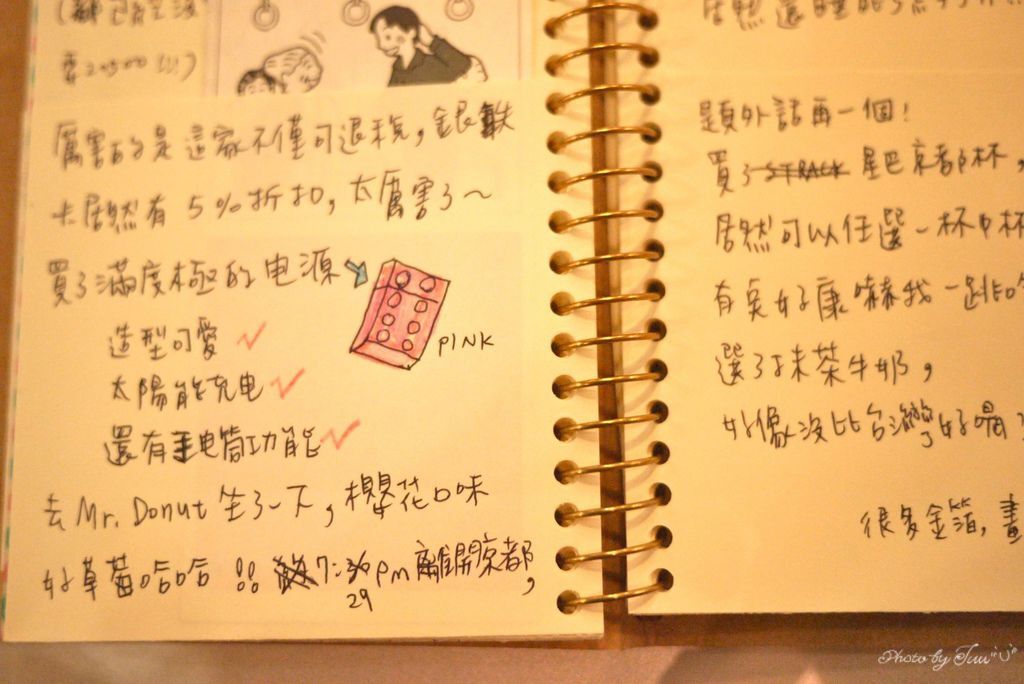 厲害的是這家不僅可退稅，銀聯
卡居然有 5%折扣，太厲害了～
買了滿度極的电源
PINK
造型可愛 ✓
太陽能充电 ✓
還有手电筒功能 ✓
去 Mr. Donut 坐了一下，櫻花口味
好草莓哈哈 !! 7:29 pm 離開京都，
居然還
題外話再一個！
買了 星巴京都杯，
居然可以任選一杯中杯
有夠好康嚇我一跳
選了抹茶牛奶，
好像沒比台灣好喝
很多金箔，畫
Photo by